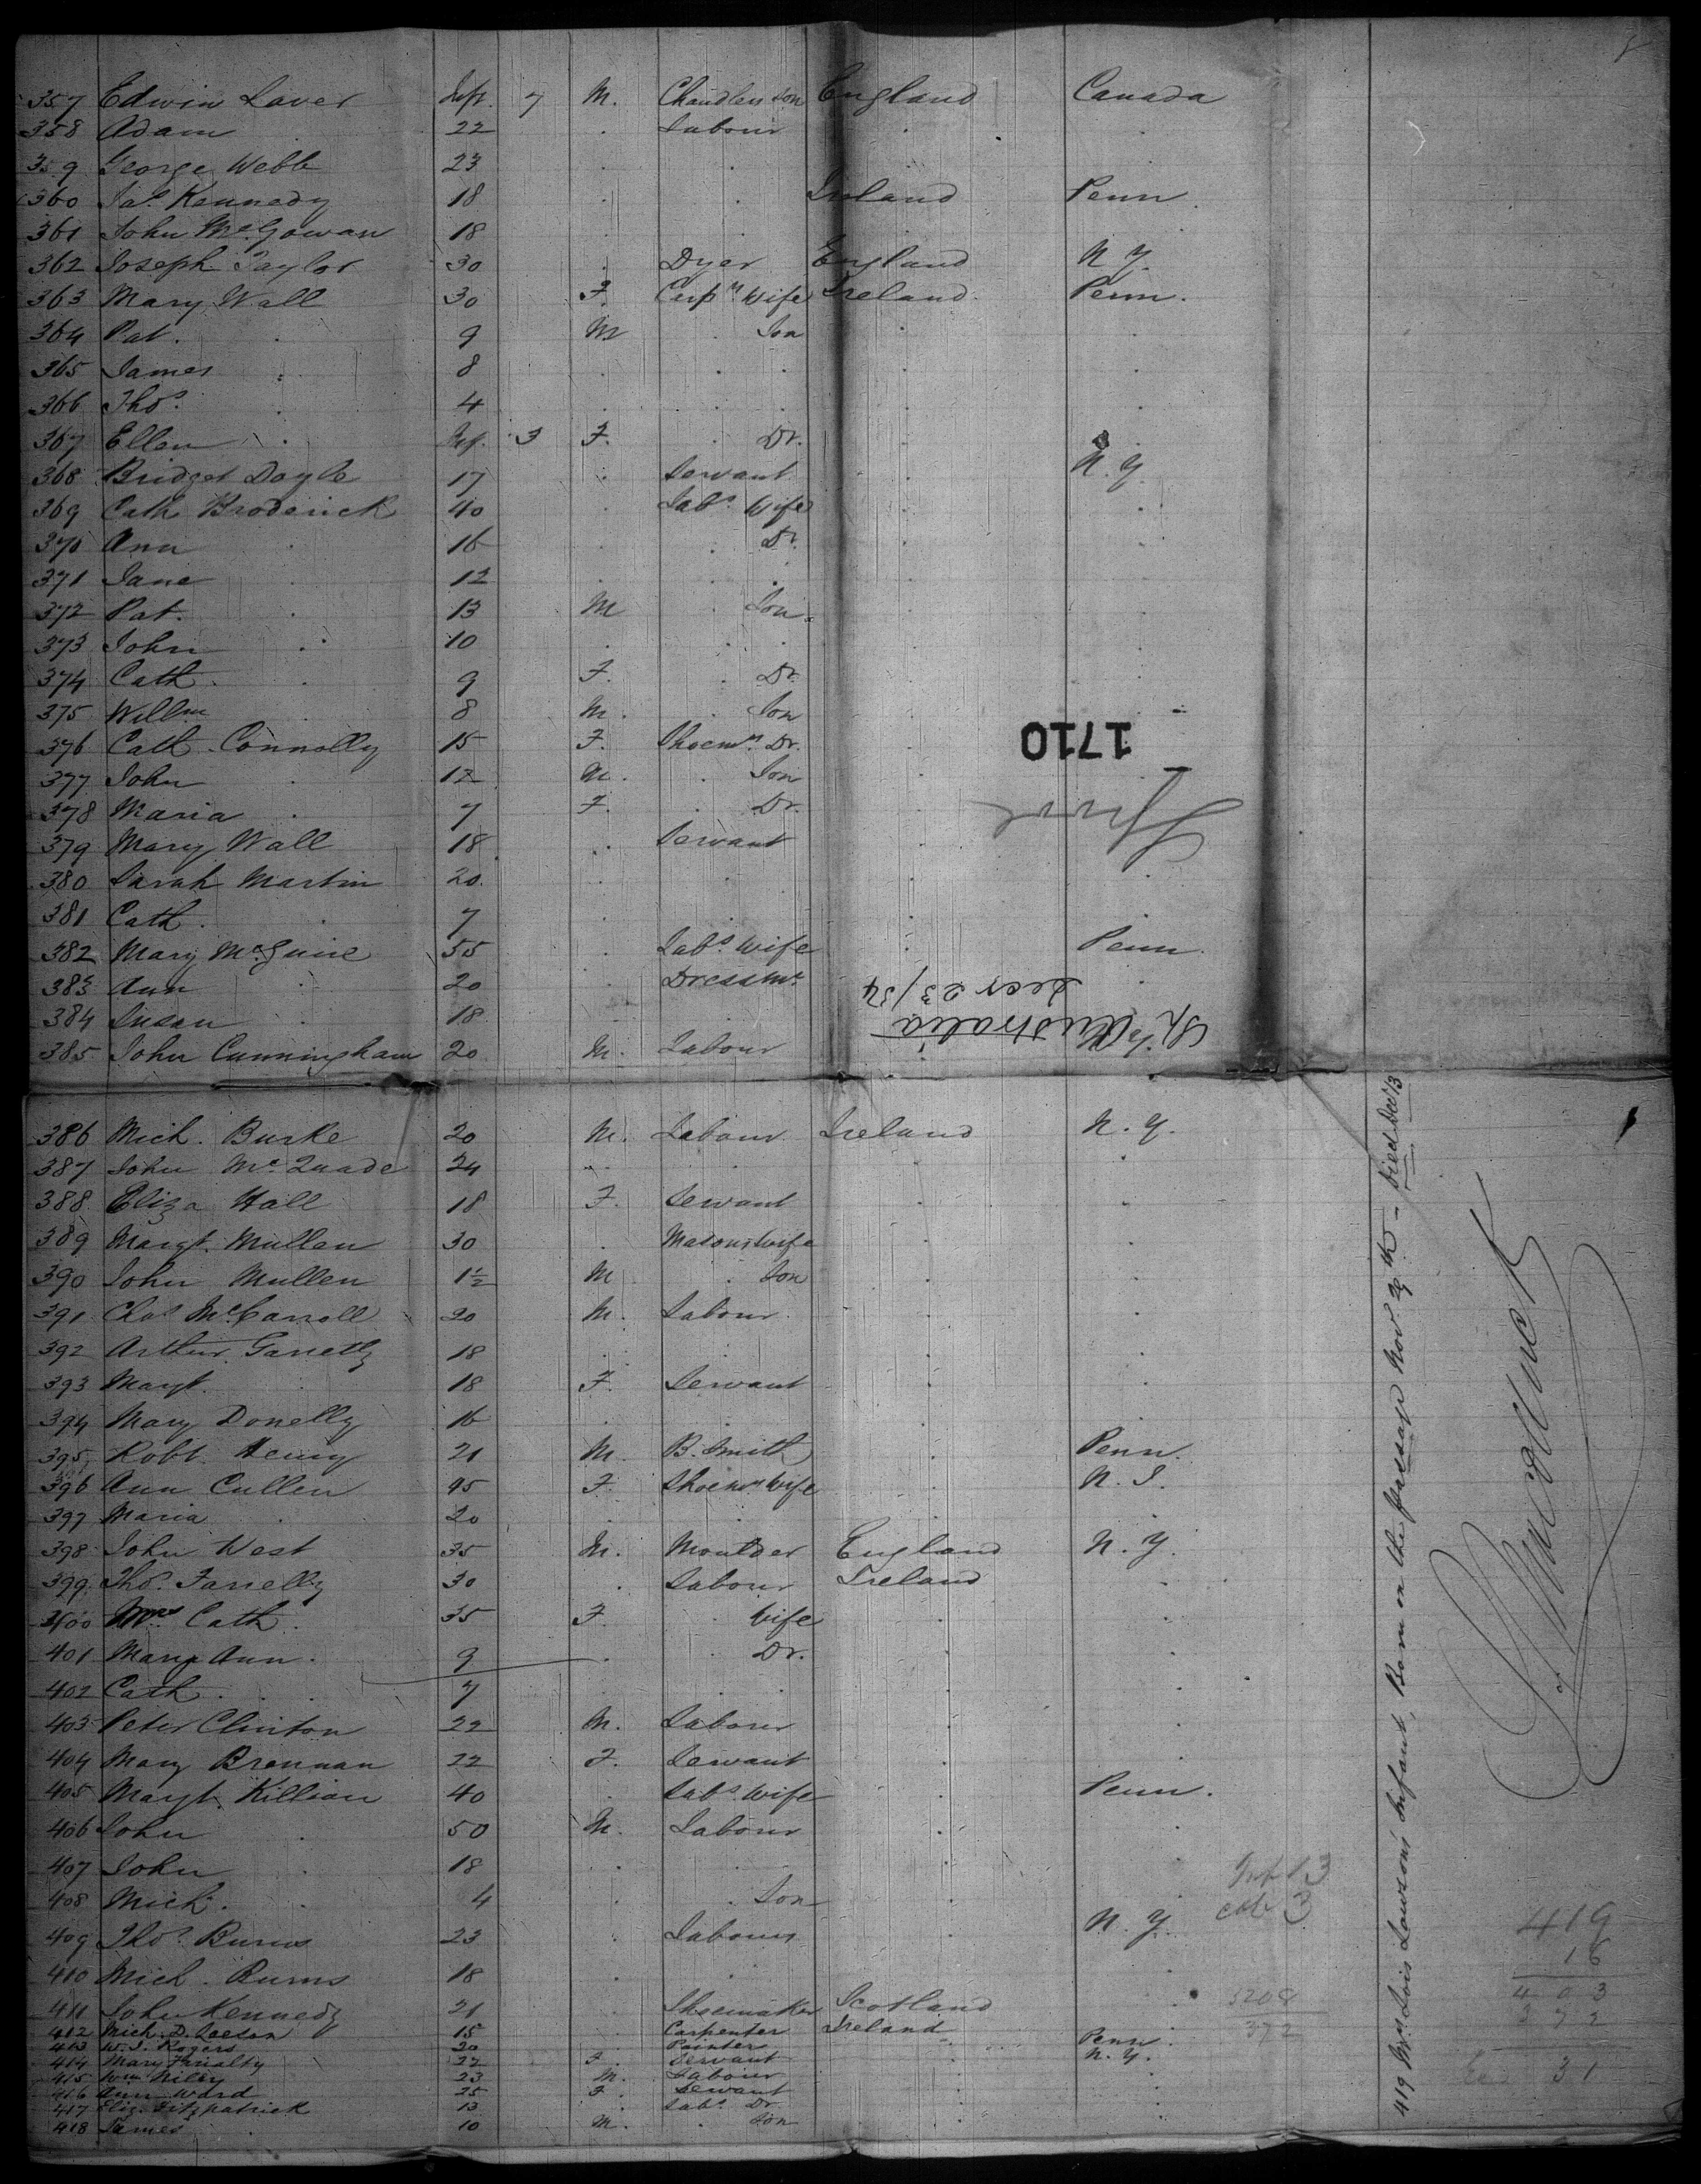 357 Edwin Laver Inft. 7 M. Chandlers son England Canada
358 Adam . 22 . Labour . .
359 George Webb 23 . . . .
360 Jas. Kennedy 18 . . Ireland Penn.
361 John McGowan 18 . . . .
362 Joseph Taylor 30 . Dyer England N Y.
363 Mary Wall 30 F. Carpr. Wife Ireland. Penn.
364 Pat. . 9 M . Son . .
365 James . 8 . . . . .
366 Thos. . 4 . . . . .
367 Ellen . Inf. 3 F. . Dr. . .
368 Bridget Doyle 17 . Servant . N. Y.
369 Cath Broderick 40 . Labs. Wife . .
370 Ann . 16 . . Dr. . .
371 Jane . 12 . . . . .
372 Pat. . 13 M . Son . .
373 John . 10 . . . . .
374 Cath . 9 F. . Dr. . .
375 Willm . 8 M. . Son . .
376 Cath Connolly 15 F. Shoemrs. Dr. . .
377 John . 12 M. . Son . .
378 Maria . 7 F. . Dr. . .
379 Mary Wall 18 . Servant . .
380 Sarah Martin 20. . . . .
381 Cath. . 7 . . . .
382 Mary McGuire 55 . Labs. Wife . Penn.
383 Ann . 20 . Dressmr. . .
384 Susan . 18 . . . .
385 John Cunningham 20 M. Labour . .
386 Mich. Burke 20 M. Labour Ireland N. Y.
387 John McQuade 24 . . . .
388 Eliza Hall 18 F. Servant . .
389 Margt. Mullen 30 . Masons wife . .
390 John Mullen 1½ M . Son . .
391 Chas McCarroll 20 M. Labour . .
392 Arthur Garretty 18 . . . .
393 Margt. . 18 F. Servant . .
394 Mary Donelly 16 . . . .
395 Robt. Henry 21 M. B. Smith . Penn.
396 Ann Cullen 45 F. Shoemrs Wife . N. J.
397 Maria . 20 . . . .
398 John West 35 M. Moulder England N. Y.
399 Thos. Farrelly 30 . Labour Ireland .
400 Mrs Cath. 35 F . Wife . .
401 Mary Ann . 9 . . Dr. . .
402 Cath . . 7 . . . . .
403 Peter Clinton 22 M. Labour . .
404 Mary Brennan 22 F. Servant . .
405 Margt. Killian 40 . Labs. Wife . Penn.
406 John . 50 M. Labour . .
407 John . 18 . . . .
408 Mich. . 4 . . Son . .
409 Thos. Burns 23 . Labour . N. Y.
410 Mich. Burns 18 . . . .
411 John Kennedy 21 . Shoemaker Scotland .
412 Mich. D. Leeson 15 . Carpenter Ireland .
413 W. J. Rogers 20 . Painter . Penn.
414 Mary 22 F. Servant . N. Y.
415 Wm Riley 23 M. Labour . .
416 Ann Ward 25 F. Servant . .
417 Eliz. Fitzpatrick 13 . Labs. Dr. . .
418 James . 10 M. . Son . .
1710
Sh. Australia
Decr 23/54
419 Mrs. Lois Lawson's Infant, Born on the passage Nov 29th - Died Dec 13
Inf 13
3
419
16
403
372
31
5208
372